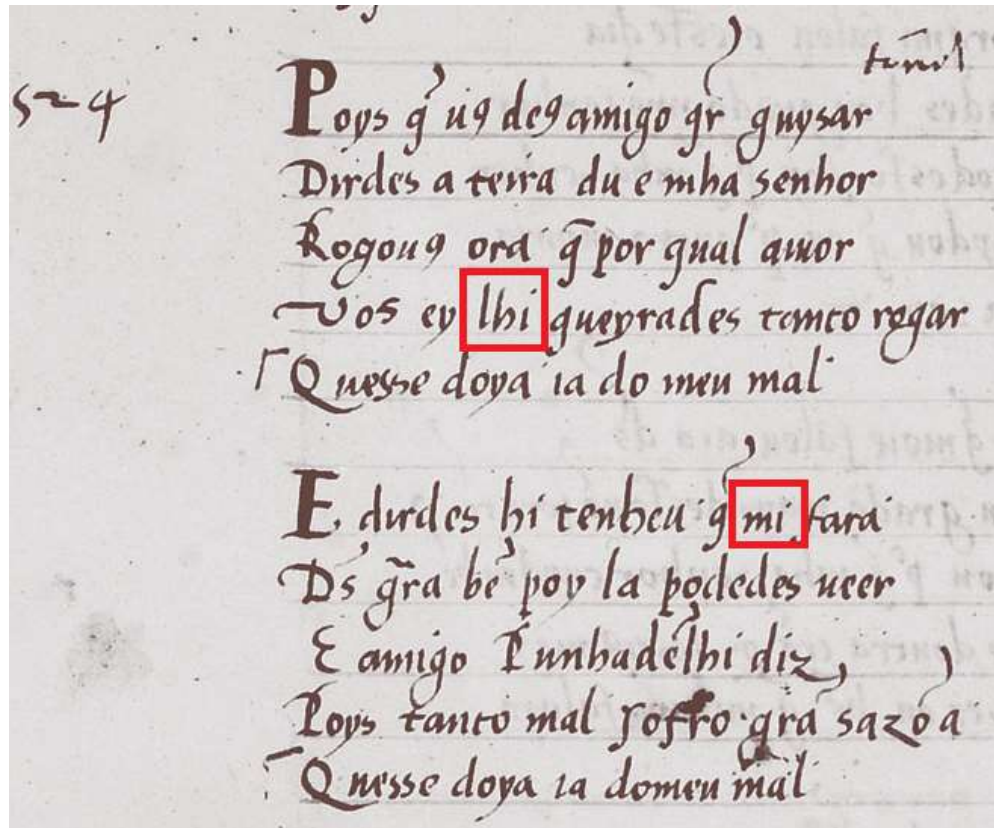 tornil
524
Poys q̃ u9 de9 amigo qr̃ guysar
Dirdes a teira du e mha senhor
Rogou9 ora q̃ por qual amor
Vos ey lhi queyrades tanto rogar
Quesse doya ia do meu mal
E dirdes hi tenheu q̃ mi fara
Ds̃ gr̃a bẽ poy la podedes ueer
E amigo Punhadẽ lhi diz,
Poys tanto mal soffro grã sazõ a
Quesse doya ia domeu mal